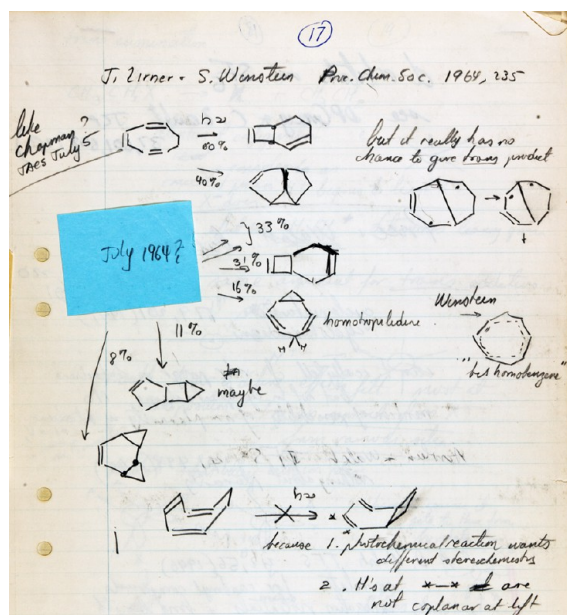 17
J. Zirner + S. Winstein Proc. Chem. Soc. 1964, 235
like
Chapman
JACS July 5?
hν
60%
40%
but it really has no
chance to give trans product
July 1964?
33%
31%
16%
homotropilidene
H H
Winstein
"bis homobenzene"
11%
8%
maybe
hν
because 1. photochemical reaction wants
different stereochemistry
2. H's at *—* are
not coplanar at left